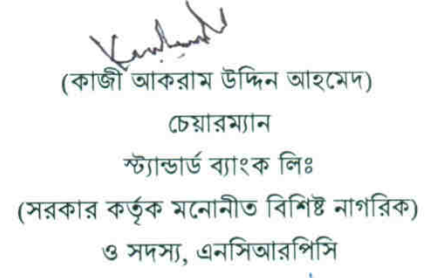 (কাজী আকরাম উদ্দিন আহমেদ)
চেয়ারম্যান
স্ট্যান্ডার্ড ব্যাংক লিঃ
(সরকার কর্তৃক মনোনীত বিশিষ্ট নাগরিক)
ও সদস্য, এনসিআরপিসি